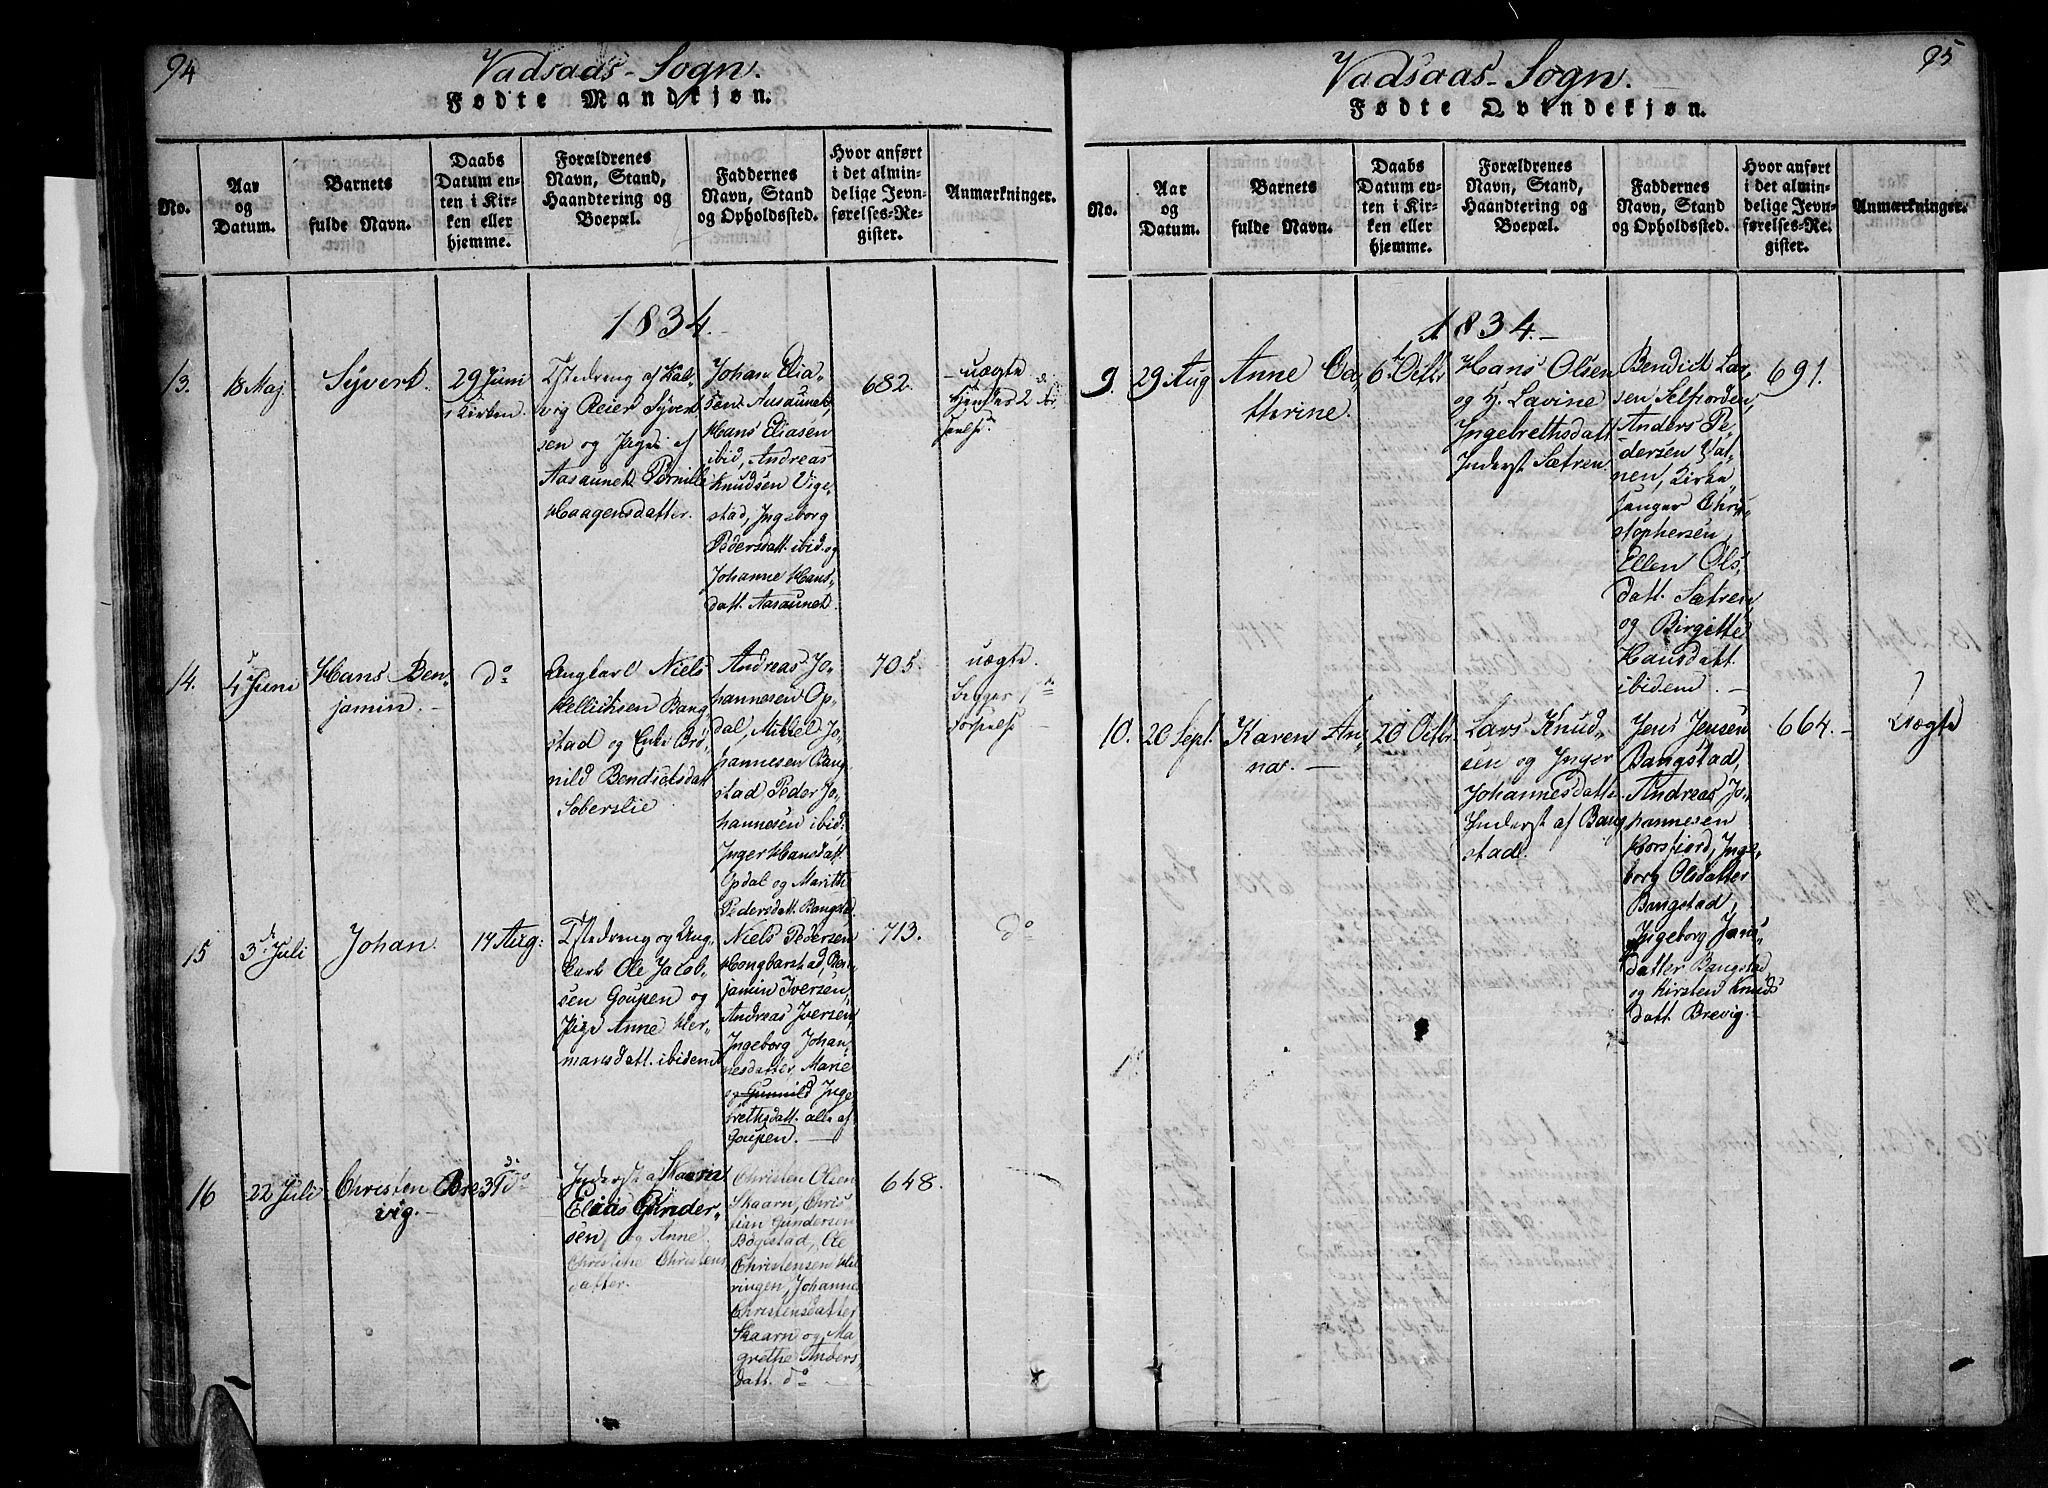 94
Vadsaas-Sogn.
Fødte Mandkjøn.
No.
Aar
og
Datum.
Barnets
fulde Navn.
Daabs
Datum en-
ten i Kir-
ken eller
hjemme.
Forældrenes
Navn, Stand,
Haandtering og
Boepæl.
Faddernes
Navn, Stand
og Opholdssted.
Hvor anført
i det almin-
delige Jevn-
førelses-Re-
gister.
Anmærkninger.
1834.
13.
18 Maj
Syvert.
29 Juni
i Kirken.
af Kal-
vig Reier Syvert
sen og Pige af
Aasaunet Pernille
Haagensdatter.
Johan Elia-
sen Aasaunet,
Hans Eliasen
ibid, Andreas
Knudsen Vige-
stad, Ingeborg
Pedersdatt. ibid. og
Johanne Hans-
datt. Aasaunet
682.
uægte
14.
4 Juni
Hans Ben-
jamin.
do
Ungkarl Niels
Bang
stad og Enke
nild Bendictsdatt
Andreas Jo-
hannesen Op-
dal, Mikkel Jo-
hannesen Bang
stad Peder Jo-
hannesen ibid.
Inger Hansdatt.
Opdal og Marith
Pedersdatt. Bangstad.
705.
uægte.
15
3d Juli
Johan.
14 Aug:
og Ung-
karl Ole Jacob-
sen Goupen og
Pige Anne Her-
mansdatt. ibidem
Niels Pedersen
Ben-
jamin Iversen,
Andreas Iversen,
Ingeborg Johan-
nesdatter, Marie
og Gunnild Inge
brethsdatt. alle af
Goupen.
713.
do
16
22 Juli
Christen Bre-
vig.
31 do
Inderst af Skaarn
Elias Gunder-
sen, og Anne
Christine Christens
datter.
Christen Olsen
Skaarn, Chris
tian Gundersen
Bøgestad, Ole
Christensen
ringen, Johanne
Christensdatter
Skaarn og Ma
grethe Anders
datt. do
648.
95
Vadsaas-Sogn.
Fødte Qvindekjøn.
No.
Aar
og
Datum.
Barnets
fulde Navn.
Daabs
Datum en-
ten i Kir-
ken eller
hjemme.
Forældrenes
Navn, Stand,
Haandtering og
Boepæl.
Faddernes
Navn, Stand
og Opholdssted.
Hvor anført
i det almin-
delige Jevn-
førelses-Re-
gister.
Anmærkninger.
1834.
9.
29 Aug
Anne Ca-
thrine.
6 Octbr
Hans Olsen
og H. Lavine
Ingebrethsdatt
Inderst Sætren.
Bendict Lar-
sen Selfiorden,
Anders Pe-
dersen Vat-
nen, Kirke
sanger Chri-
stophersen,
Ellen Ols-
datt. Sætren,
og Birgitte
Hansdatt.
ibidem.
691.
10.
20 Sept.
Karen An-
na.
20 Octbr
Lars Knud-
sen og Inger
Johannesdatter
Inderst af Bang
stad.
Jens Jensen
Bangstad,
Andreas Jo-
hannesen
Korsfiord, Inge-
borg Olsdatter
Bangstad,
Ingeborg Jens-
datter Bangstad,
og Kirsten Knuds
datt. Brevig.
664.
Uægte